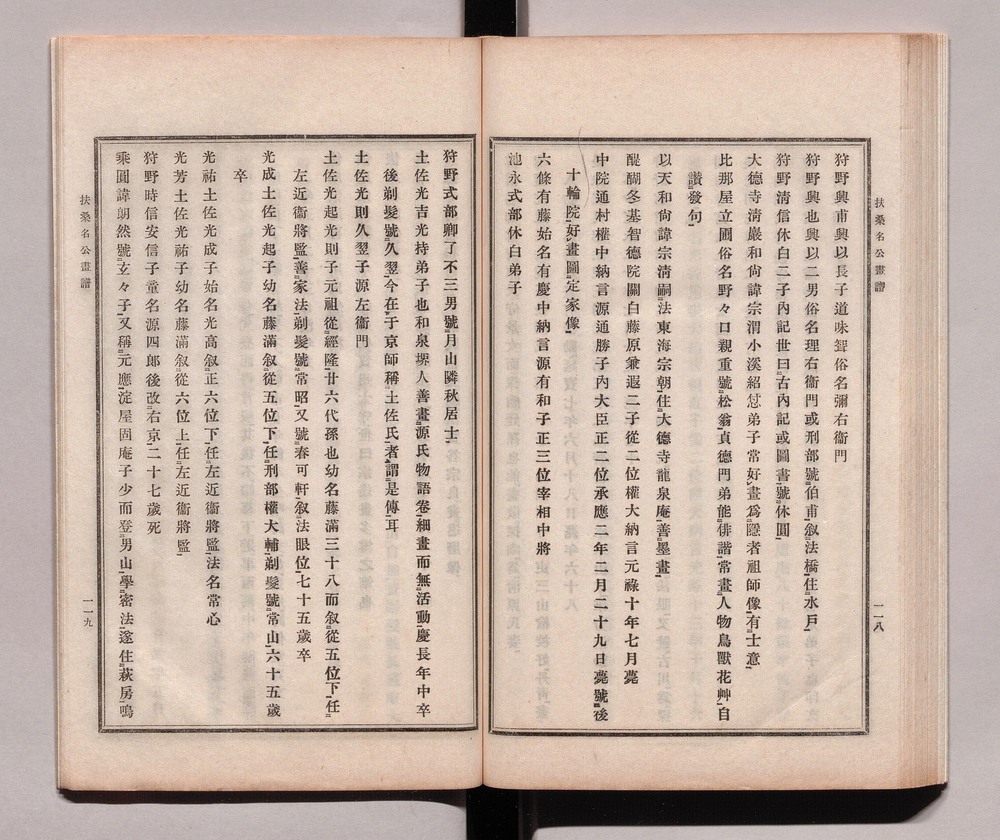 扶桑名公畫譜
一一八
狩野興甫興以長子道味聟俗名彌右衞門
狩野興也興以二男俗名理右衞門或刑部號伯甫叙法橋住水戶
狩野淸信休白二子內記世曰古內記或圖書號休圓
大德寺淸巖和尙諱宗渭小溪紹㤅弟子常好畫爲隱者祖師像有士意
比那屋立圃俗名野々口親重號松翁貞德門弟能俳諧常畫人物鳥獸花艸自
讃發句
以天和尙諱宗淸嗣法東海宗朝住大德寺龍泉庵善墨畫
醍醐冬基智德院關白藤原兼遐二子從二位權大納言元祿十年七月薨
中院通村權中納言源通勝子內大臣正二位承應二年二月二十九日薨號後
十輪院好畫圖定家像
六條有藤始名有慶中納言源有和子正三位宰相中將
池永式部休白弟子
狩野式部卿了不三男號月山隣秋居士
土佐光吉光持弟子也和泉堺人善畫源氏物語卷細畫而無活動慶長年中卒
後剃髮號久翌今在于京師稱土佐氏者謂是傳耳
土佐光則久翌子源左衞門
土佐光起光則子元祖從經隆廿六代孫也幼名藤滿三十八而叙從五位下任
左近衞將監善家法剃髮號常昭又號春可軒叙法眼位七十五歲卒
光成土佐光起子幼名藤滿叙從五位下任刑部權大輔剃髮號常山六十五歲
卒
光祐土佐光成子始名光高叙正六位下任左近衞將監法名常心
光芳土佐光祐子幼名藤滿叙從六位上任左近衞將監
狩野時信安信子童名源四郎後改右京二十七歲死
乘圓諱朗然號玄々子又稱元應淀屋固庵子少而登男山學密法遂住萩房鳴
扶桑名公畫譜
一一九